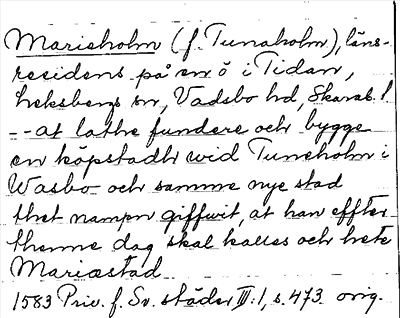 Marieholm (f. Tunaholm), läns-
residens på en ö i Tidan,
Leksbergs sn, Vadsbo hd, Skarab. l
-- at lathe fundere och bygge
en köpstadh wid Tuneholm i
Wasbo och samme nye stad
thet nampn giffwit, at han effter-
thenne dag skal kalles och hete
Mariæstad
1583 Priv. f. Sv. städer III:1, s. 473 orig.